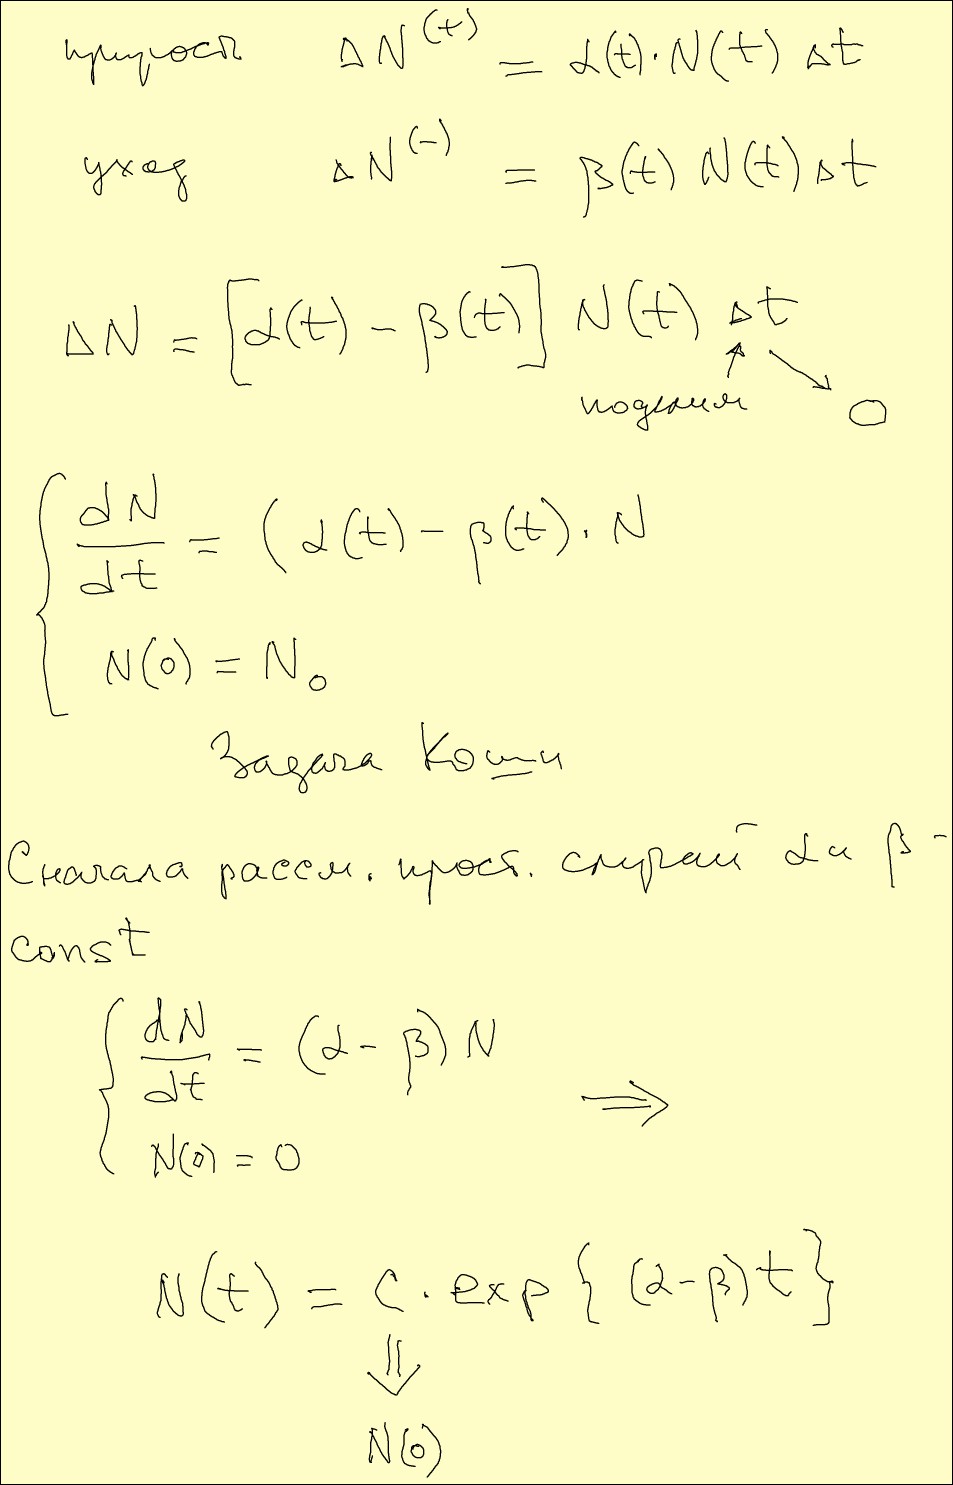 прирост ΔN^(+) = α(t)·N(t) Δt
уход ΔN^(-) = β(t) N(t) Δt
ΔN = [α(t) - β(t)] N(t) Δt
поделим 0
dN/dt = (α(t) - β(t)·N
N(0) = N₀
Задача Коши
Сначала рассм. прост. случай α и β -
const
dN/dt = (α - β) N ⇒
N(0) = 0
N(t) = C · exp{(α-β)t}
⇓
N(0)